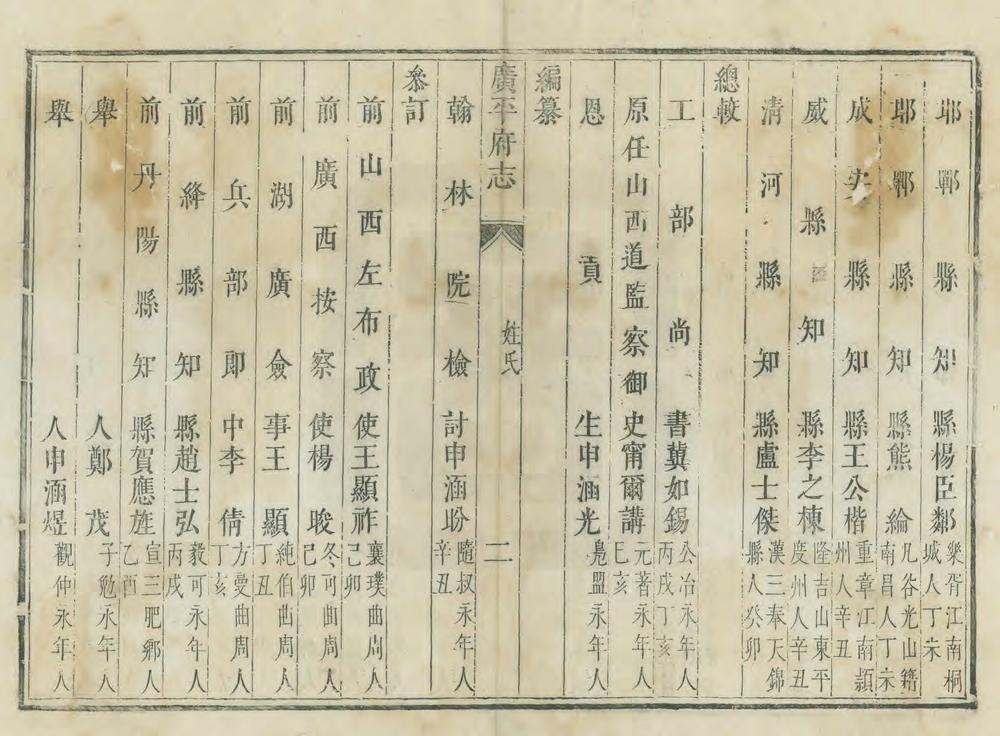 邯鄲縣知縣楊臣鄰樂胥江南桐城人丁未
邯鄲縣知縣熊綸凡谷光山籍南昌人丁未
成安縣知縣王公楷重章江南潁州人辛丑
威縣知縣李之棟隆吉山東平度州人辛丑
清河縣知縣盧士傑漢三奉天錦縣人癸卯
總較
工部尚書冀如錫公冶永年人丙戌丁亥
原任山西道監察御史甯爾講元著永年人巳亥
恩貢生申涵光鳧盟永年人
編纂
廣平府志 姓氏 二
翰林院檢討申涵盼隨叔永年人辛丑
叅訂
前山西左布政使王顯祚襄璞曲周人己卯
前廣西按察使楊晙冬可曲周人己卯
前湖廣僉事王顯純伯曲周人丁丑
前兵部郎中李倩方曼曲周人丁亥
前絳縣知縣趙士弘毅可永年人丙戌
前丹陽縣知縣賀應旌宣三肥鄉人乙酉
舉人鄭茂子勉永年人
舉人申涵煜觀仲永年人